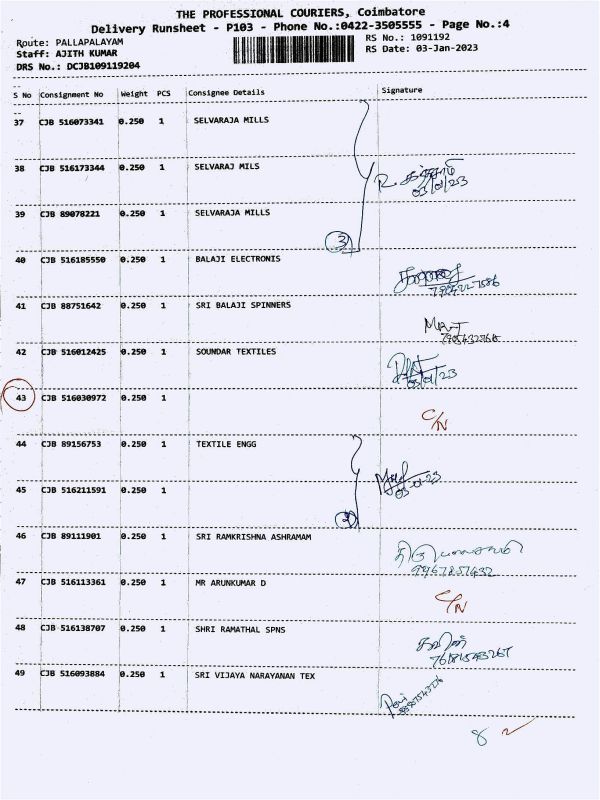 THE PROFESSIONAL COURIERS, Coimbatore
Delivery Runsheet - P103 - Phone No.:0422-3505555 - Page No.:4
Route: PALLAPALAYAM RS No.: 1091192
Staff: AJITH KUMAR RS Date: 03-Jan-2023
DRS No.: DCJB109119204
S No Consignment No Weight PCS Consignee Details Signature
37 CJB 516073341 0.250 1 SELVARAJA MILLS
38 CJB 516173344 0.250 1 SELVARAJ MILS
R
03/01/23
39 CJB 89078221 0.250 1 SELVARAJA MILLS
3
40 CJB 516185550 0.250 1 BALAJI ELECTRONIS
41 CJB 88751642 0.250 1 SRI BALAJI SPINNERS
42 CJB 516012425 0.250 1 SOUNDAR TEXTILES
03/01/23
43 CJB 516030972 0.250 1
C/N
44 CJB 89156753 0.250 1 TEXTILE ENGG
45 CJB 516211591 0.250 1
03-01-23
2
46 CJB 89111901 0.250 1 SRI RAMKRISHNA ASHRAMAM
47 CJB 516113361 0.250 1 MR ARUNKUMAR D
C/N
48 CJB 516138707 0.250 1 SHRI RAMATHAL SPNS
கவின்
49 CJB 516093884 0.250 1 SRI VIJAYA NARAYANAN TEX
8 2